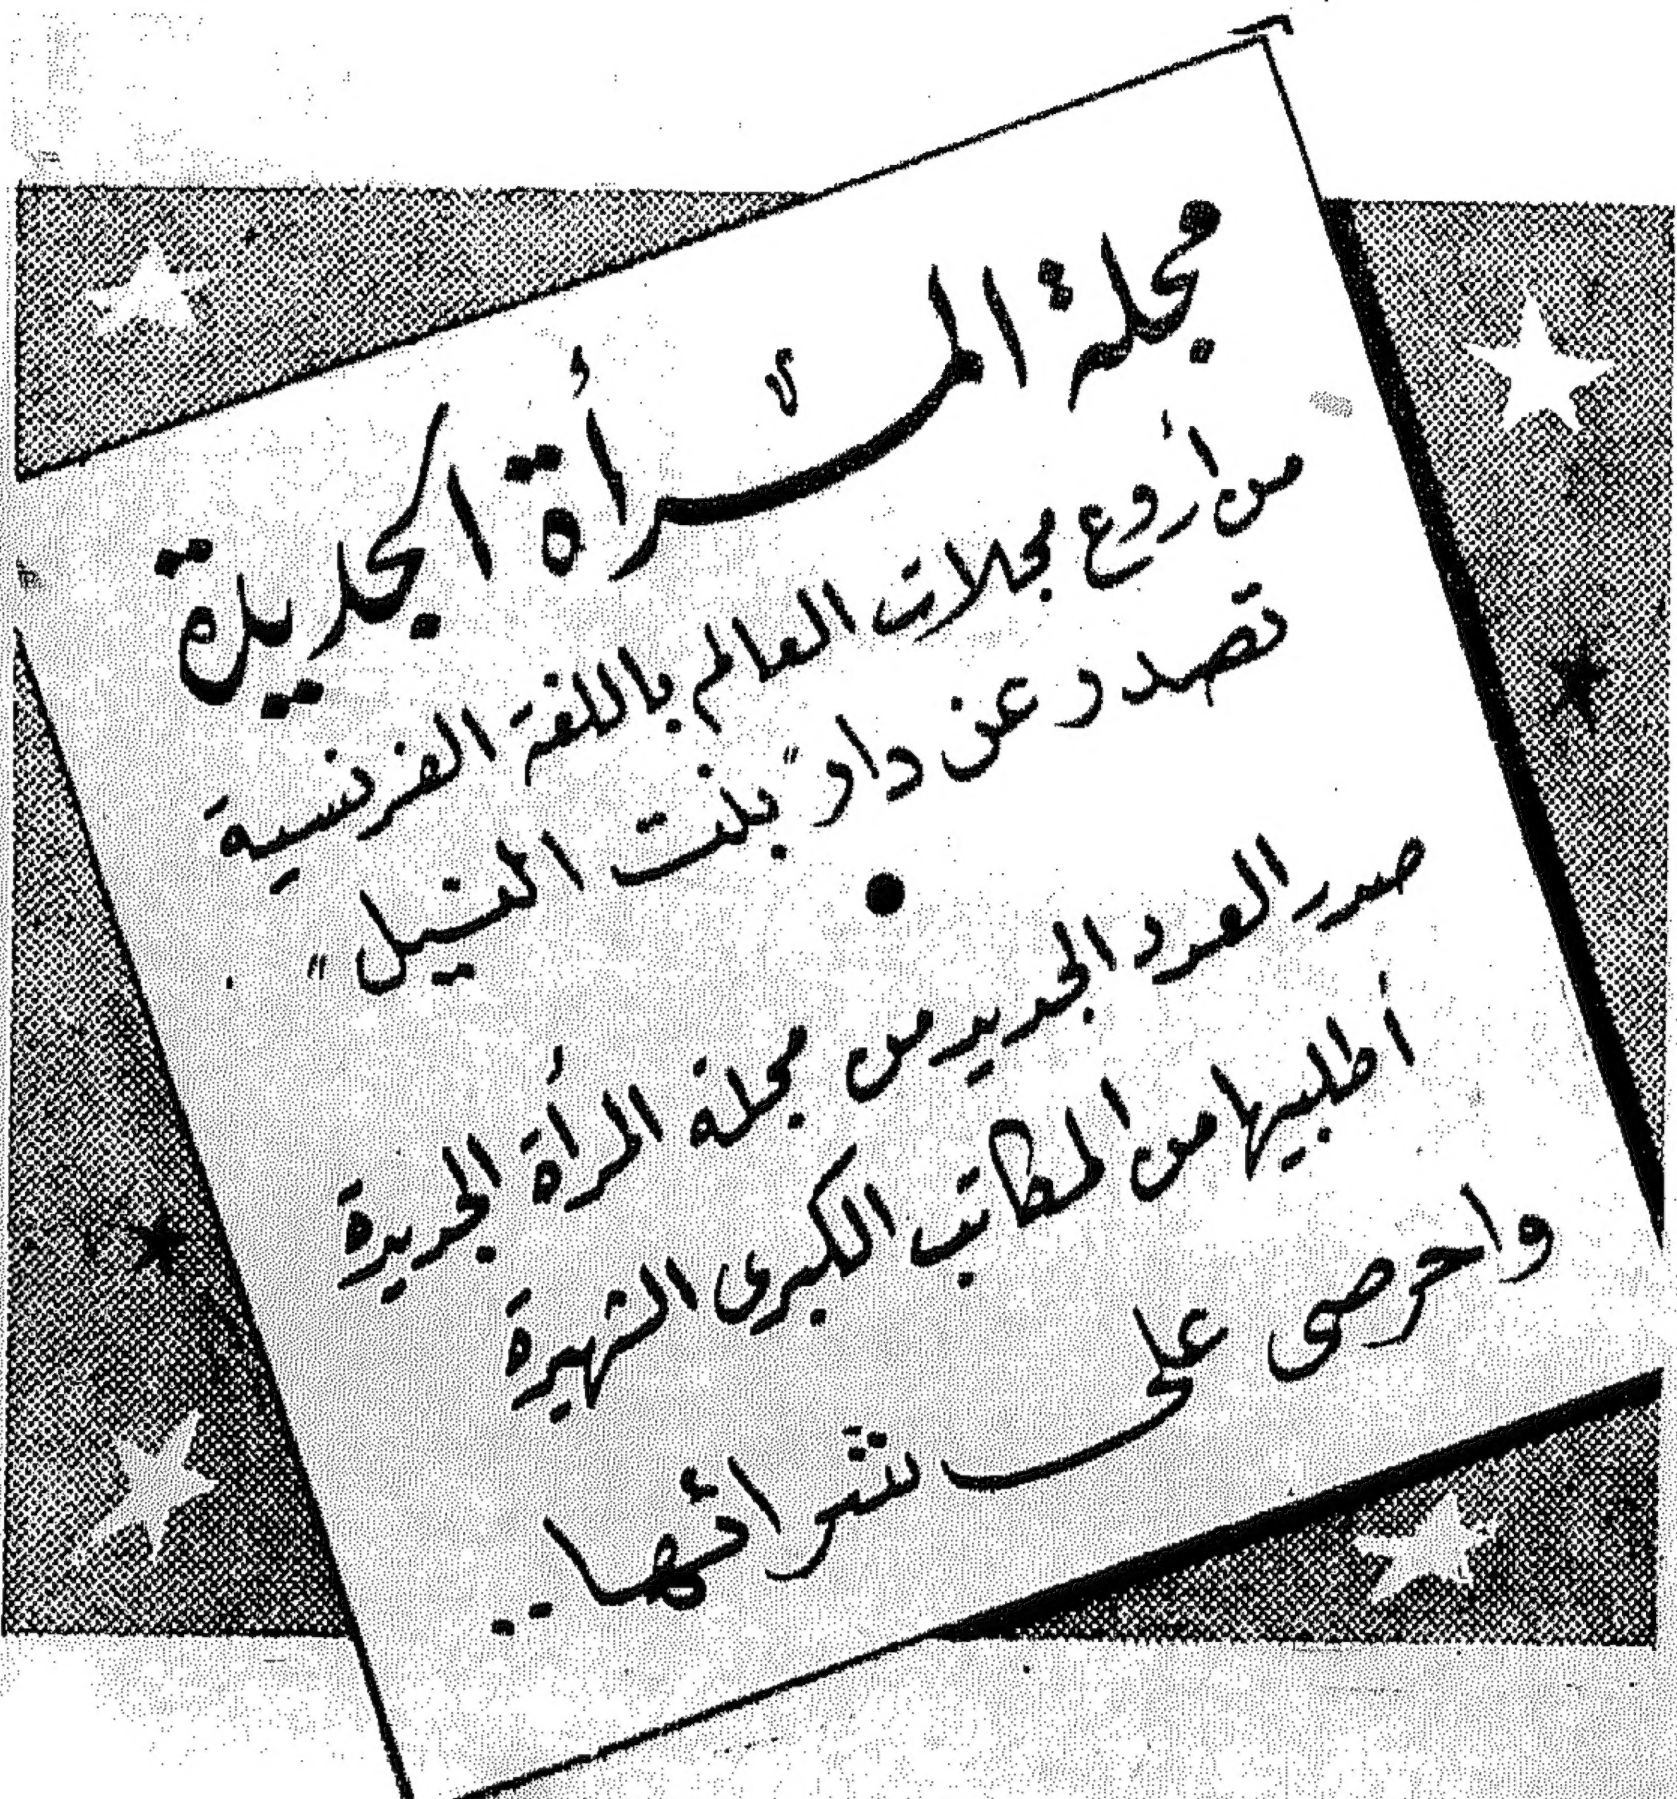 مجلة المرأة الجديدة
من أروع مجلات العالم باللغة الفرنسية
تصدر عن دار "بنت النيل"
صدر العدد الجديد من مجلة المرأة الجديدة
أطلبيها من المكاتب الكبرى الشهيرة
واحرصى على شرائها..